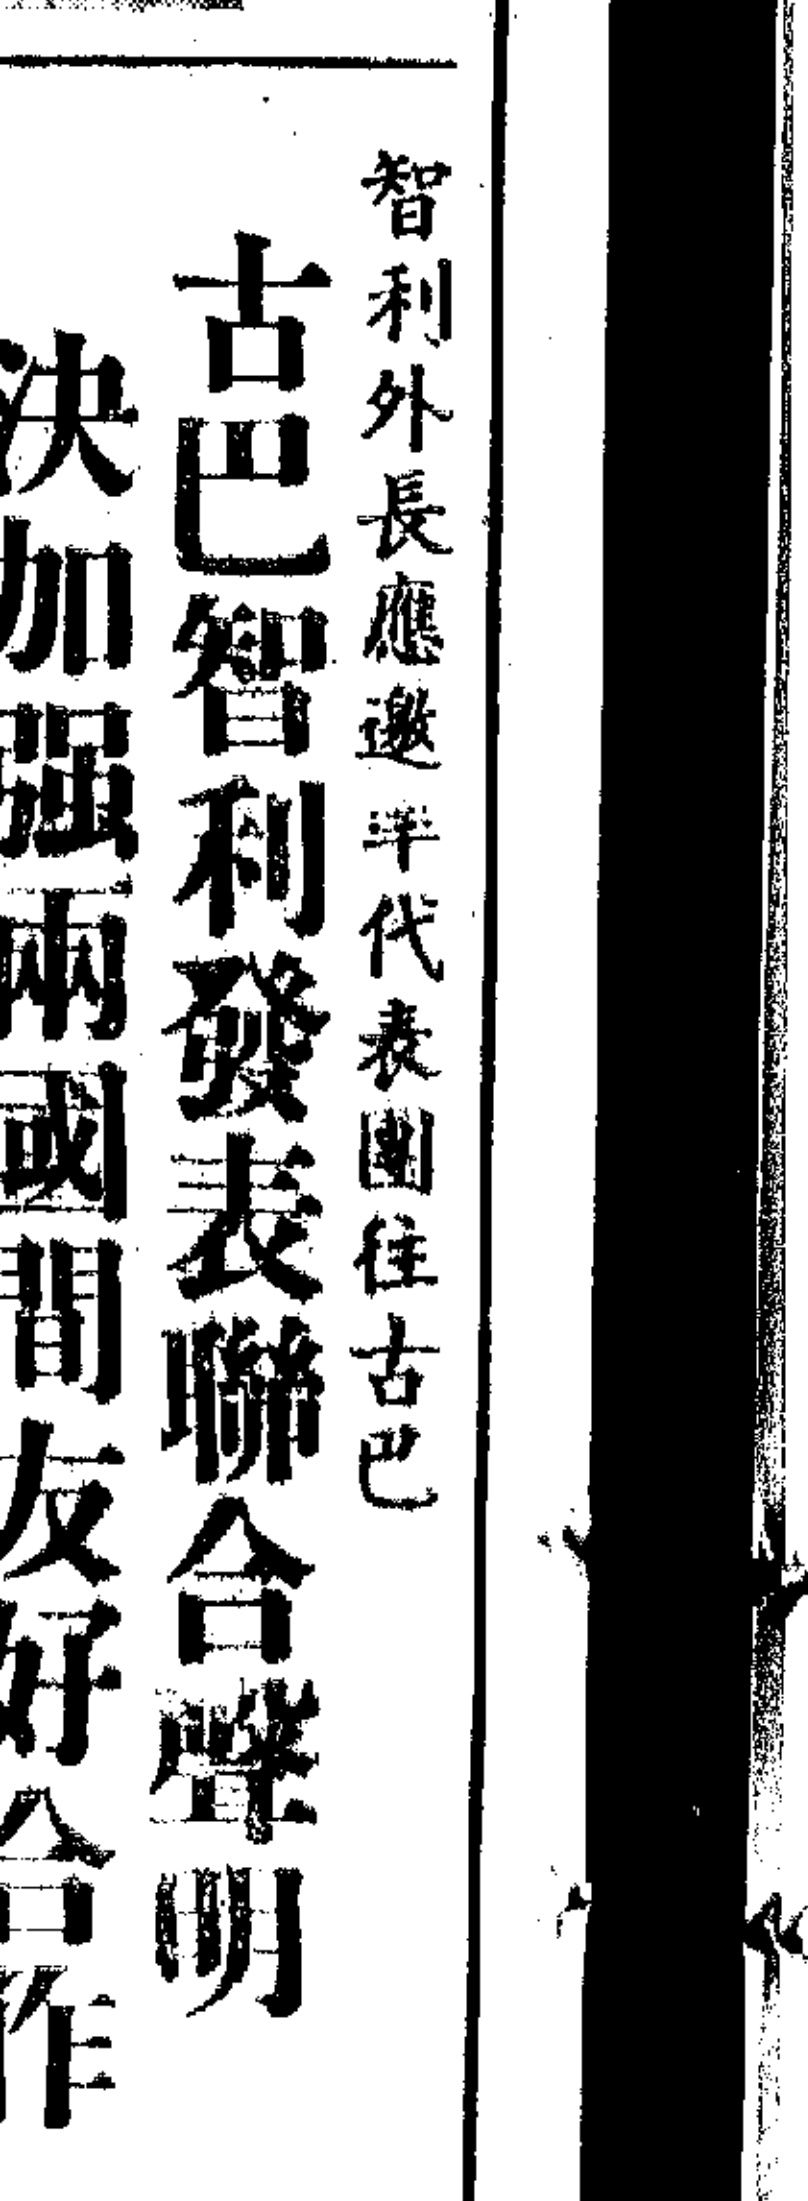 智利外長應邀率代表團往古巴
古巴智利發表聯合聲明
決加强兩國間友好合作